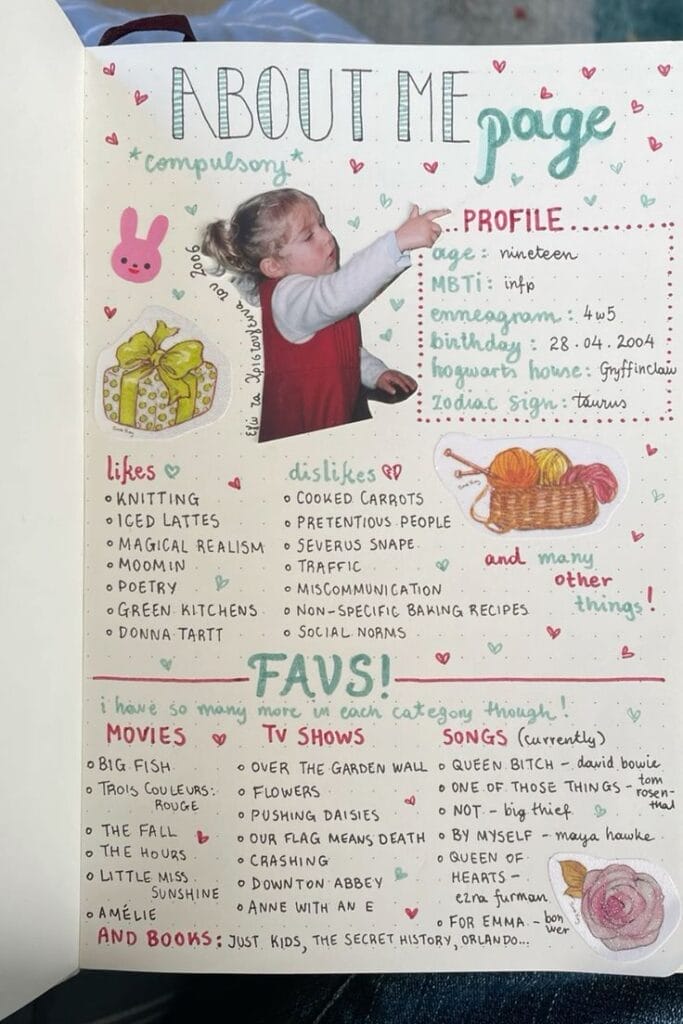 ABOUT ME page
*compulsory*
εγώ τα Χριστούγεννα του 2006
PROFILE
age: nineteen
MBTi: infp
enneagram: 4w5
birthday: 28.04.2004
hogwarts house: Gryffinclaw
zodiac sign: taurus
likes
KNITTING
ICED LATTES
MAGICAL REALISM
MOOMIN
POETRY
GREEN KITCHENS
DONNA TARTT
dislikes
COOKED CARROTS
PRETENTIOUS PEOPLE
SEVERUS SNAPE
TRAFFIC
MISCOMMUNICATION
NON-SPECIFIC BAKING RECIPES
SOCIAL NORMS
and many
other
things!
FAVS!
i have so many more in each category though!
MOVIES
BIG FISH
TROIS COULEURS:
ROUGE
THE FALL
THE HOURS
LITTLE MISS
SUNSHINE
AMÉLIE
TV SHOWS
OVER THE GARDEN WALL
FLOWERS
PUSHING DAISIES
OUR FLAG MEANS DEATH
CRASHING
DOWNTON ABBEY
ANNE WITH AN E
SONGS (currently)
QUEEN BITCH - david bowie
ONE OF THOSE THINGS - tom
rosen-
thal
NOT - big thief
BY MYSELF - maya hawke
QUEEN OF
HEARTS -
ezra furman
FOR EMMA - bon
wer
AND BOOKS: JUST KIDS, THE SECRET HISTORY, ORLANDO...